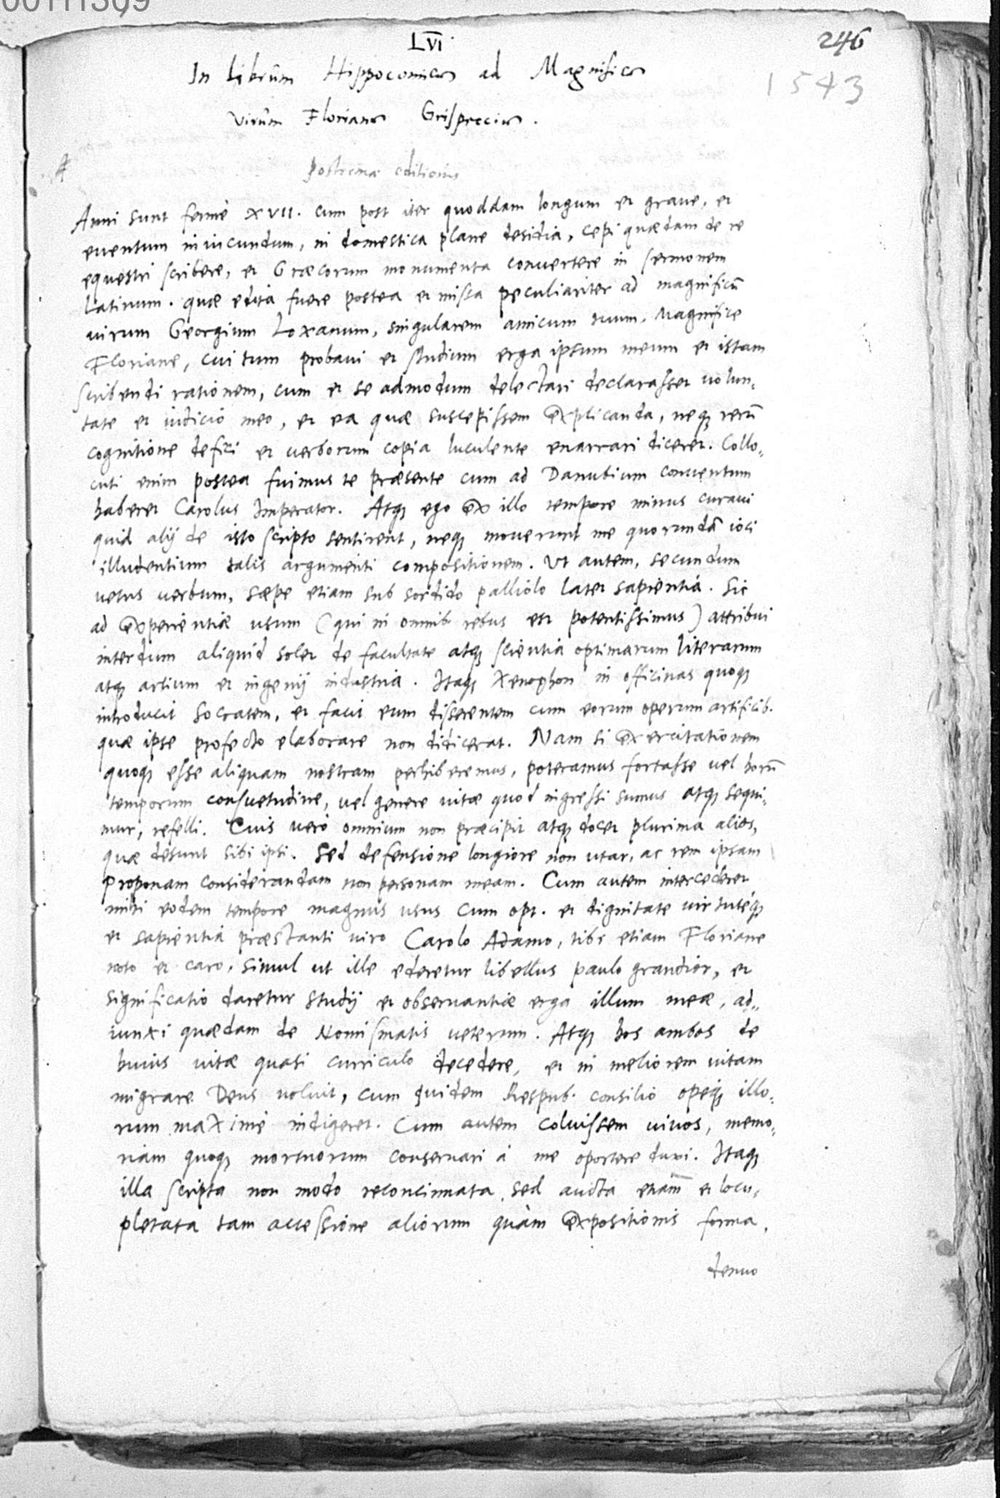 LVI
246
1543
In Librum Hippocomicum ad Magnificum
virum Florianum Grispecium.
postremae editionis
Anni sunt fermè XVII. cum post iter quoddam longum et graue, et
euentum iniucundum, in domestica plane desidia, cepi quædam de re
equestri scribere, et Græcorum monumenta conuertere in sermonem
Latinum. quæ edita fuere postea et missa peculiariter ad magnificũ
virum Georgium Loxanum, singularem amicum tuum, Magnifice
Floriane, cui tum probaui et studium erga ipsum meum et istam
scribendi rationem, cum et se admodum delectari declarasset volun,
tate et iudicio meo, et ea quæ suscepissem explicanda, neqȝ rerũ
cognitione defici et verborum copia luculente enarrari diceret. Collo,
cuti enim postea fuimus te præsente cum ad Danubium conuentum
haberet Carolus Imperator. Atqȝ ego ex illo tempore minus curaui
quid alij de isto scripto sentirent, neqȝ mouerunt me quorundã ioci
illudentium talis argumenti compositionem. Vt autem, secundum
vetus verbum, sæpe etiam sub sordido palliolo latet sapientia. Sic
ad experientiæ usum (qui in omnib. rebus est potentissimus) attribui
interdum aliquid solet de facultate atqȝ scientia optimarum literarum
atqȝ artium et ingenij industria. Itaqȝ Xenophon in officinas quoqȝ
introducit Socratem, et facit eum disserentem cum eorum operum artificib.
quæ ipse profecto elaborare non didicerat. Nam si exercitationem
quoqȝ esse aliquam nostram perhiberemus, poteramus fortasse vel horũ
temporum consuetudine, vel genere vitæ quod ingressi sumus atqȝ sequi,
mur, refelli. Quis verò omnium non præcipit atqȝ docet plurima alios,
quæ desunt sibi ipsi. Sed defensione longiore non utar, ac rem ipsam
proponam considerandam non personam meam. Cum autem intercederet
mihi eodem tempore magnus usus cum opt. et dignitate virtuteqȝ
et sapientia præstanti viro Carolo Adamo, tibi etiam Floriane
noto et caro, simul ut ille ederetur libellus paulo grandior, et
significatio daretur studij et obseruantiæ erga illum meæ, ad,,
iunxi quædam de Nomismatis veterum. Atqȝ hos ambos de
huius vitæ quasi curriculo decedere, et in meliorem vitam
migrare Deus voluit, cum quidem Respub. consilio opeqȝ illo,
rum maximè indigeret. Cum autem coluissem viuos, memo,
riam quoqȝ mortuorum conseruari à me oportere duxi. Itaqȝ
illa scripta non modo reconcinnata, sed aucta etiam et locu,
pletata tam accessione aliorum quàm expositionis forma,
denuo